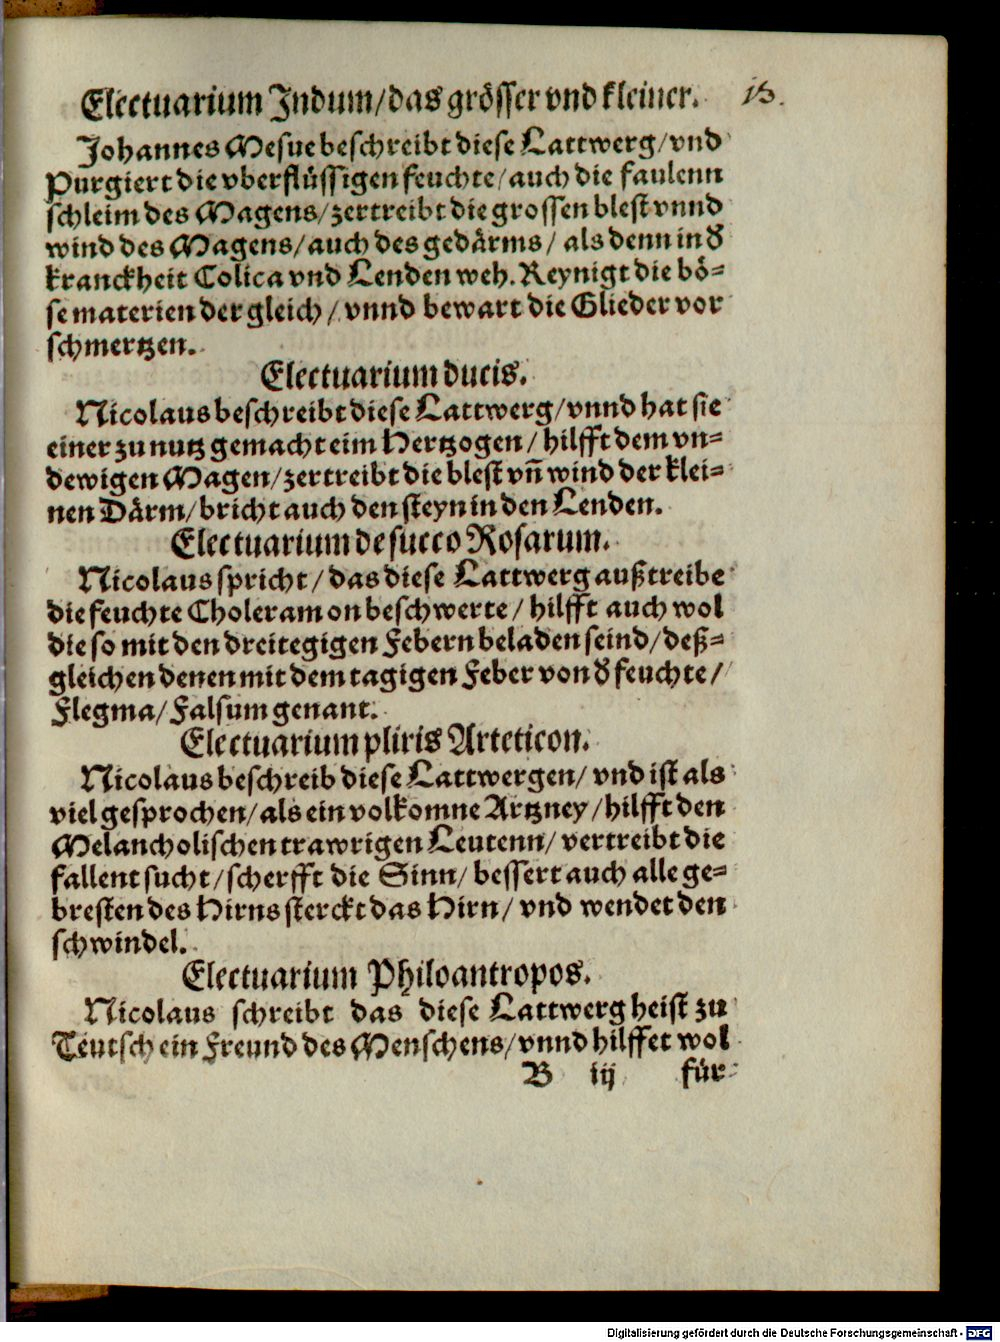 Electuarium Indum/das grösser vnd kleiner. 13.
Johannes Mesue beschreibt diese Lattwerg/vnd
Purgiert die vberflüssigen feuchte/auch die faulenn
schleim des Magens/zertreibt die grossen blest vnnd
wind des Magens/auch des gedärms/ als denn in d̕
kranckheit Colica vnd Lenden weh. Reynigt die bö-
se materien der gleich/vnnd bewart die Glieder vor
schmertzen.
Electuarium ducis.
Nicolaus beschreibt diese Lattwerg/vnnd hat sie
einer zu nutz gemacht eim Hertzogen/hilfft dem vn-
dewigen Magen/zertreibt die blest vn̄ wind der klei-
nen Därm/bricht auch den steyn in den Lenden.
Electuarium de succo Rosarum.
Nicolaus spricht/das diese Lattwerg außtreibe
die feuchte Choleram on beschwerte/hilfft auch wol
die so mit den dreitegigen Febern beladen seind/deß-
gleichen denen mit dem tagigen Feber von d̕ feuchte/
Flegma/Falsum genant.
Electuarium pliris Arteticon.
Nicolaus beschreib diese Lattwergen/vnd ist als
viel gesprochen/als ein volkomne Artzney/hilfft den
Melancholischen trawrigen Leutenn/vertreibt die
fallent sucht/scherfft die Sinn/bessert auch alle ge-
bresten des Hirns sterckt das Hirn/vnd wendet den
schwindel.
Electuarium Philoantropos.
Nicolaus schreibt das diese Lattwerg heist zu
Teutsch ein Freund des Menschens/vnnd hilffet wol
B iij für
Digitalisierung gefördert durch die Deutsche Forschungsgemeinschaft - DFG